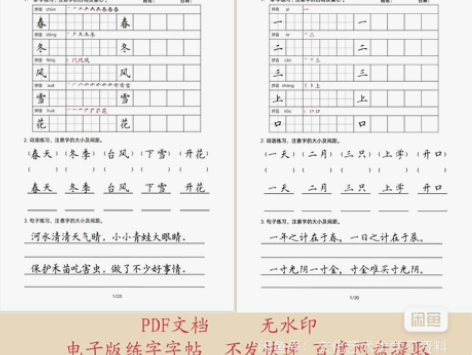 春 春
冬 冬
风 风
雪 雪
花 花
2. 词语练习，注意字的大小及间距。
(春天) (冬季) (台风) (下雪) (开花)
春天 冬季 台风 下雪 开花
3. 句子练习，注意字的大小及间距。
河水清清天气晴，小小青蛙大眼睛。
保护禾苗吃害虫，做了不少好事情。
1/20
一 一
二 二
三 三
上 上
口 口
2. 词语练习，注意字的大小及间距。
(一天) (二月) (三只) (上学) (开口)
一天 二月 三只 上学 开口
3. 句子练习，注意字的大小及间距。
一年之计在于春，一日之计在于辰。
一寸光阴一寸金，寸金难买寸光阴。
1/20
闲鱼
PDF文档 无水印
电子版练字字帖 不发快递 百度网盘提取